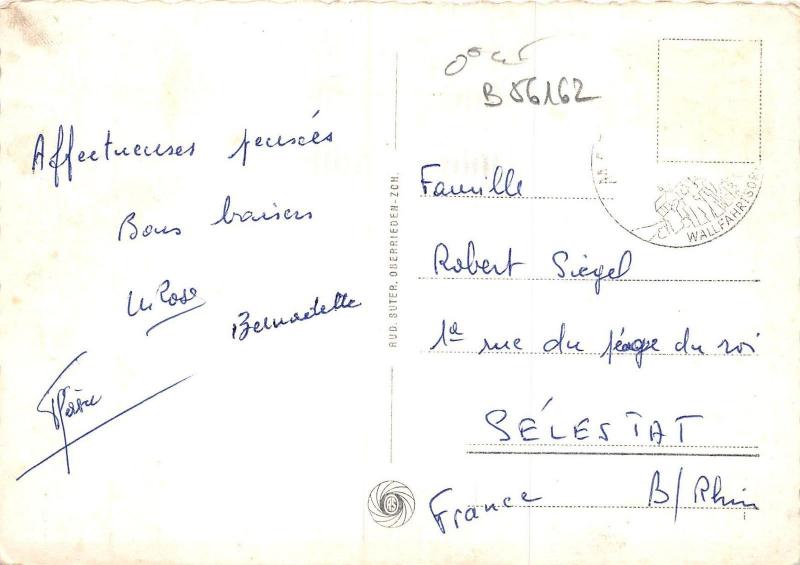 Affectueuses pensées
Bons baisers
M. Rose
Bernadette
RUD. SUTER, OBERRIEDEN-ZCH.
B 56162
WALLFAHRTSOR
Famille
Robert Siegel
1a rue du péage du roi
SÉLESTAT
France B/Rhin